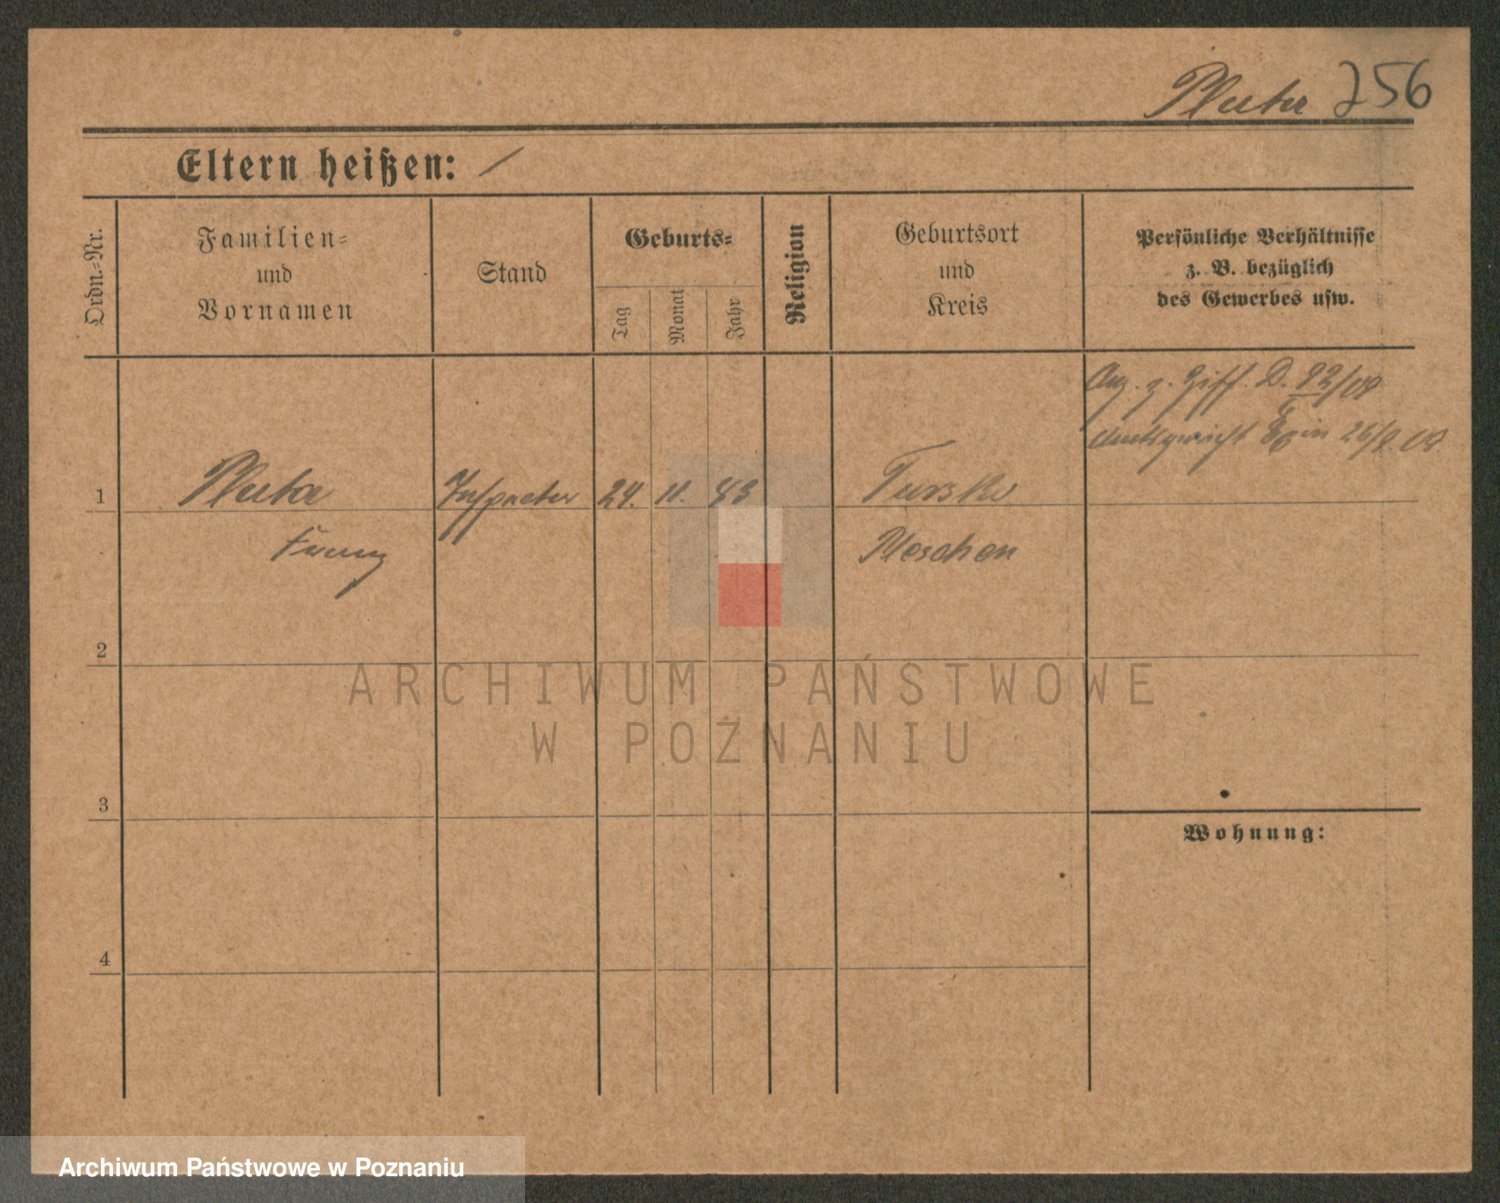 Pluta 256
Eltern heißen: /
Ordn.-Nr.
Familien-
und
Vornamen
Stand
Geburts-
Tag
Monat
Jahr
Religion
Geburtsort
und
Kreis
Persönliche Verhältnisse
z. B. bezüglich
des Gewerbes usw.
D. 92/08
Amtsgericht Exin 26/9. 08
1 Pluta Inspector 24. 11. 43 Tursko
Franz Pleschen
2
3
4
Wohnung:
ARCHIWUM PAŃSTWOWE
W POZNANIU
Archiwum Państwowe w Poznaniu